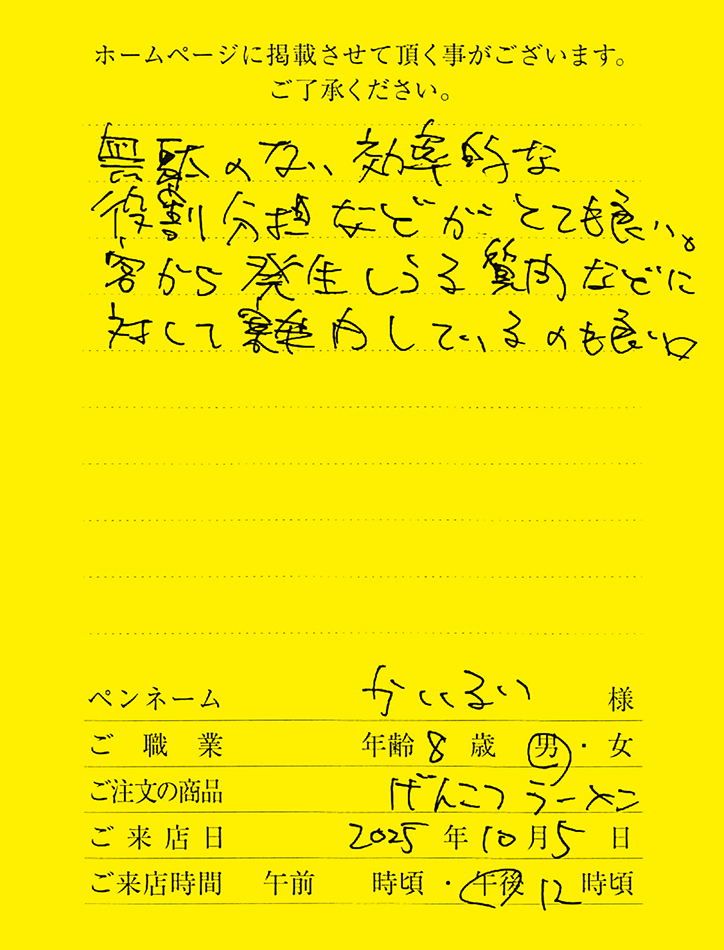 ホームページに掲載させて頂く事がございます。
ご了承ください。
無駄のない効率的な
役割分担などがとても良い。
客から発生しうる質問などに
対して注力しているのも良い。
ペンネーム かいるい 様
ご職業 年齢 8 歳 男・女
ご注文の商品 げんこつラーメン
ご来店日 2025 年 10 月 5 日
ご来店時間 午前 時頃・午後 12 時頃